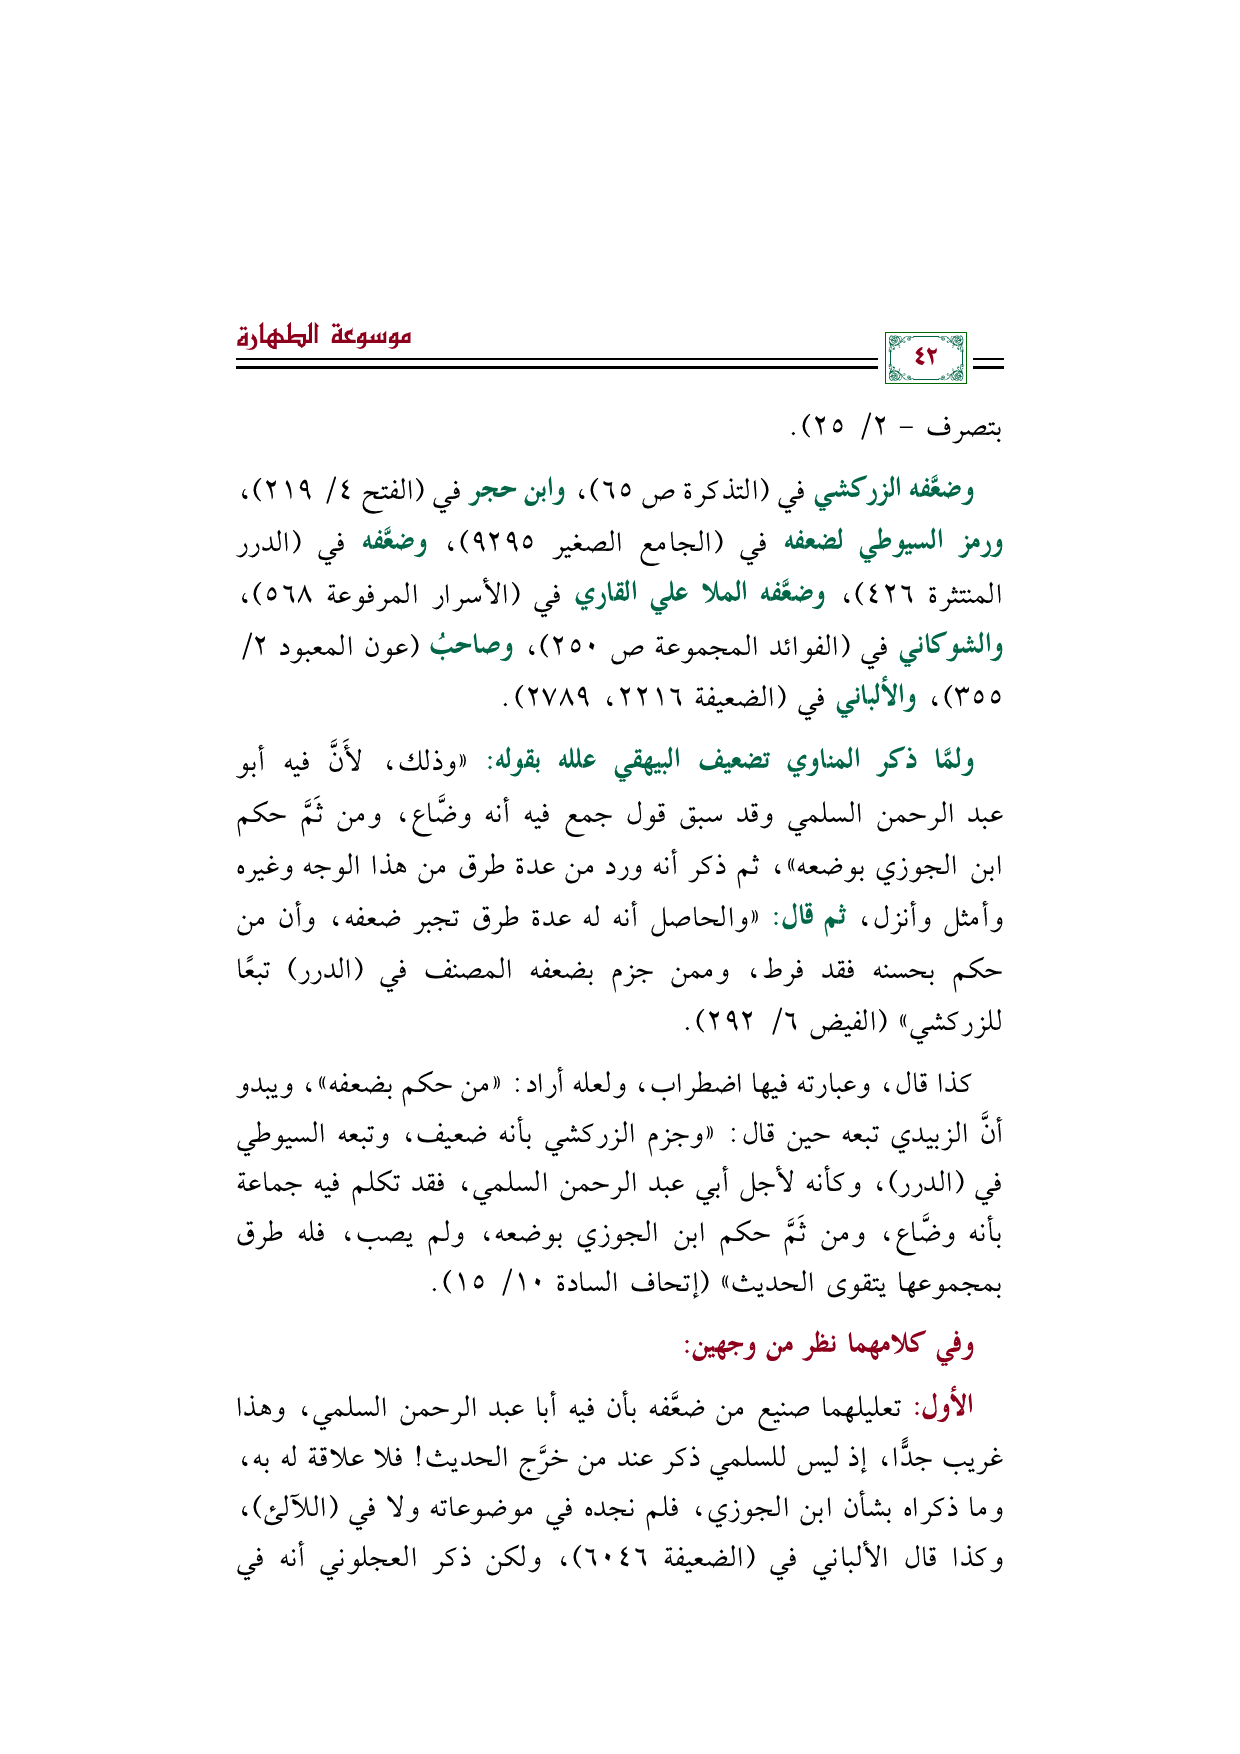 موسوعة الطهارة
٤٢
بتصرف – ٢/ ٢٥).
وضعَّفه الزركشي في (التذكرة ص ٦٥)، وابن حجر في (الفتح ٤/ ٢١٩)،
ورمز السيوطي لضعفه في (الجامع الصغير ٩٢٩٥)، وضعَّفه في (الدرر
المنتثرة ٤٢٦)، وضعَّفه الملا علي القاري في (الأسرار المرفوعة ٥٦٨)،
والشوكاني في (الفوائد المجموعة ص ٢٥٠)، وصاحبُ (عون المعبود ٢/
٣٥٥)، والألباني في (الضعيفة ٢٢١٦، ٢٧٨٩).
ولمَّا ذكر المناوي تضعيف البيهقي علله بقوله: «وذلك، لأَنَّ فيه أبو
عبد الرحمن السلمي وقد سبق قول جمع فيه أنه وضَّاع، ومن ثَمَّ حكم
ابن الجوزي بوضعه»، ثم ذكر أنه ورد من عدة طرق من هذا الوجه وغيره
وأمثل وأنزل، ثم قال: «والحاصل أنه له عدة طرق تجبر ضعفه، وأن من
حكم بحسنه فقد فرط، وممن جزم بضعفه المصنف في (الدرر) تبعًا
للزركشي» (الفيض ٦/ ٢٩٢).
كذا قال، وعبارته فيها اضطراب، ولعله أراد: «من حكم بضعفه»، ويبدو
أنَّ الزبيدي تبعه حين قال: «وجزم الزركشي بأنه ضعيف، وتبعه السيوطي
في (الدرر)، وكأنه لأجل أبي عبد الرحمن السلمي، فقد تكلم فيه جماعة
بأنه وضَّاع، ومن ثَمَّ حكم ابن الجوزي بوضعه، ولم يصب، فله طرق
بمجموعها يتقوى الحديث» (إتحاف السادة ١٠/ ١٥).
وفي كلامهما نظر من وجهين:
الأول: تعليلهما صنيع من ضعَّفه بأن فيه أبا عبد الرحمن السلمي، وهذا
غريب جدًّا، إذ ليس للسلمي ذكر عند من خرَّج الحديث! فلا علاقة له به،
وما ذكراه بشأن ابن الجوزي، فلم نجده في موضوعاته ولا في (اللآلئ)،
وكذا قال الألباني في (الضعيفة ٦٠٤٦)، ولكن ذكر العجلوني أنه في